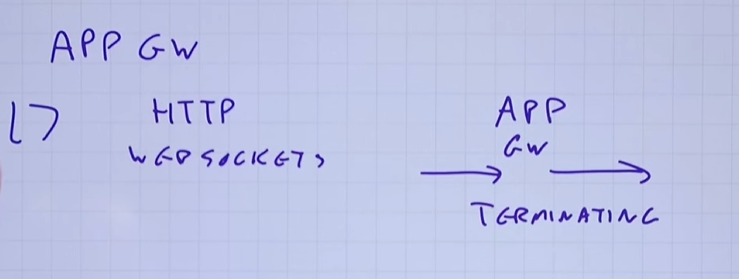 APP GW
L7
HTTP
WEBSOCKETS
APP
GW
TERMINATING